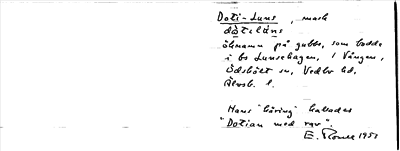 Doti-Luns, mask
dòtiláns
öknamn på gubbe, som bodde
i bs Lunsehagen, i Vången,
Ödsbölt sn, Vedbo hd,
Älvsb. l.
Hans "käring" kallades
"Dotian med rav".
E. 1951